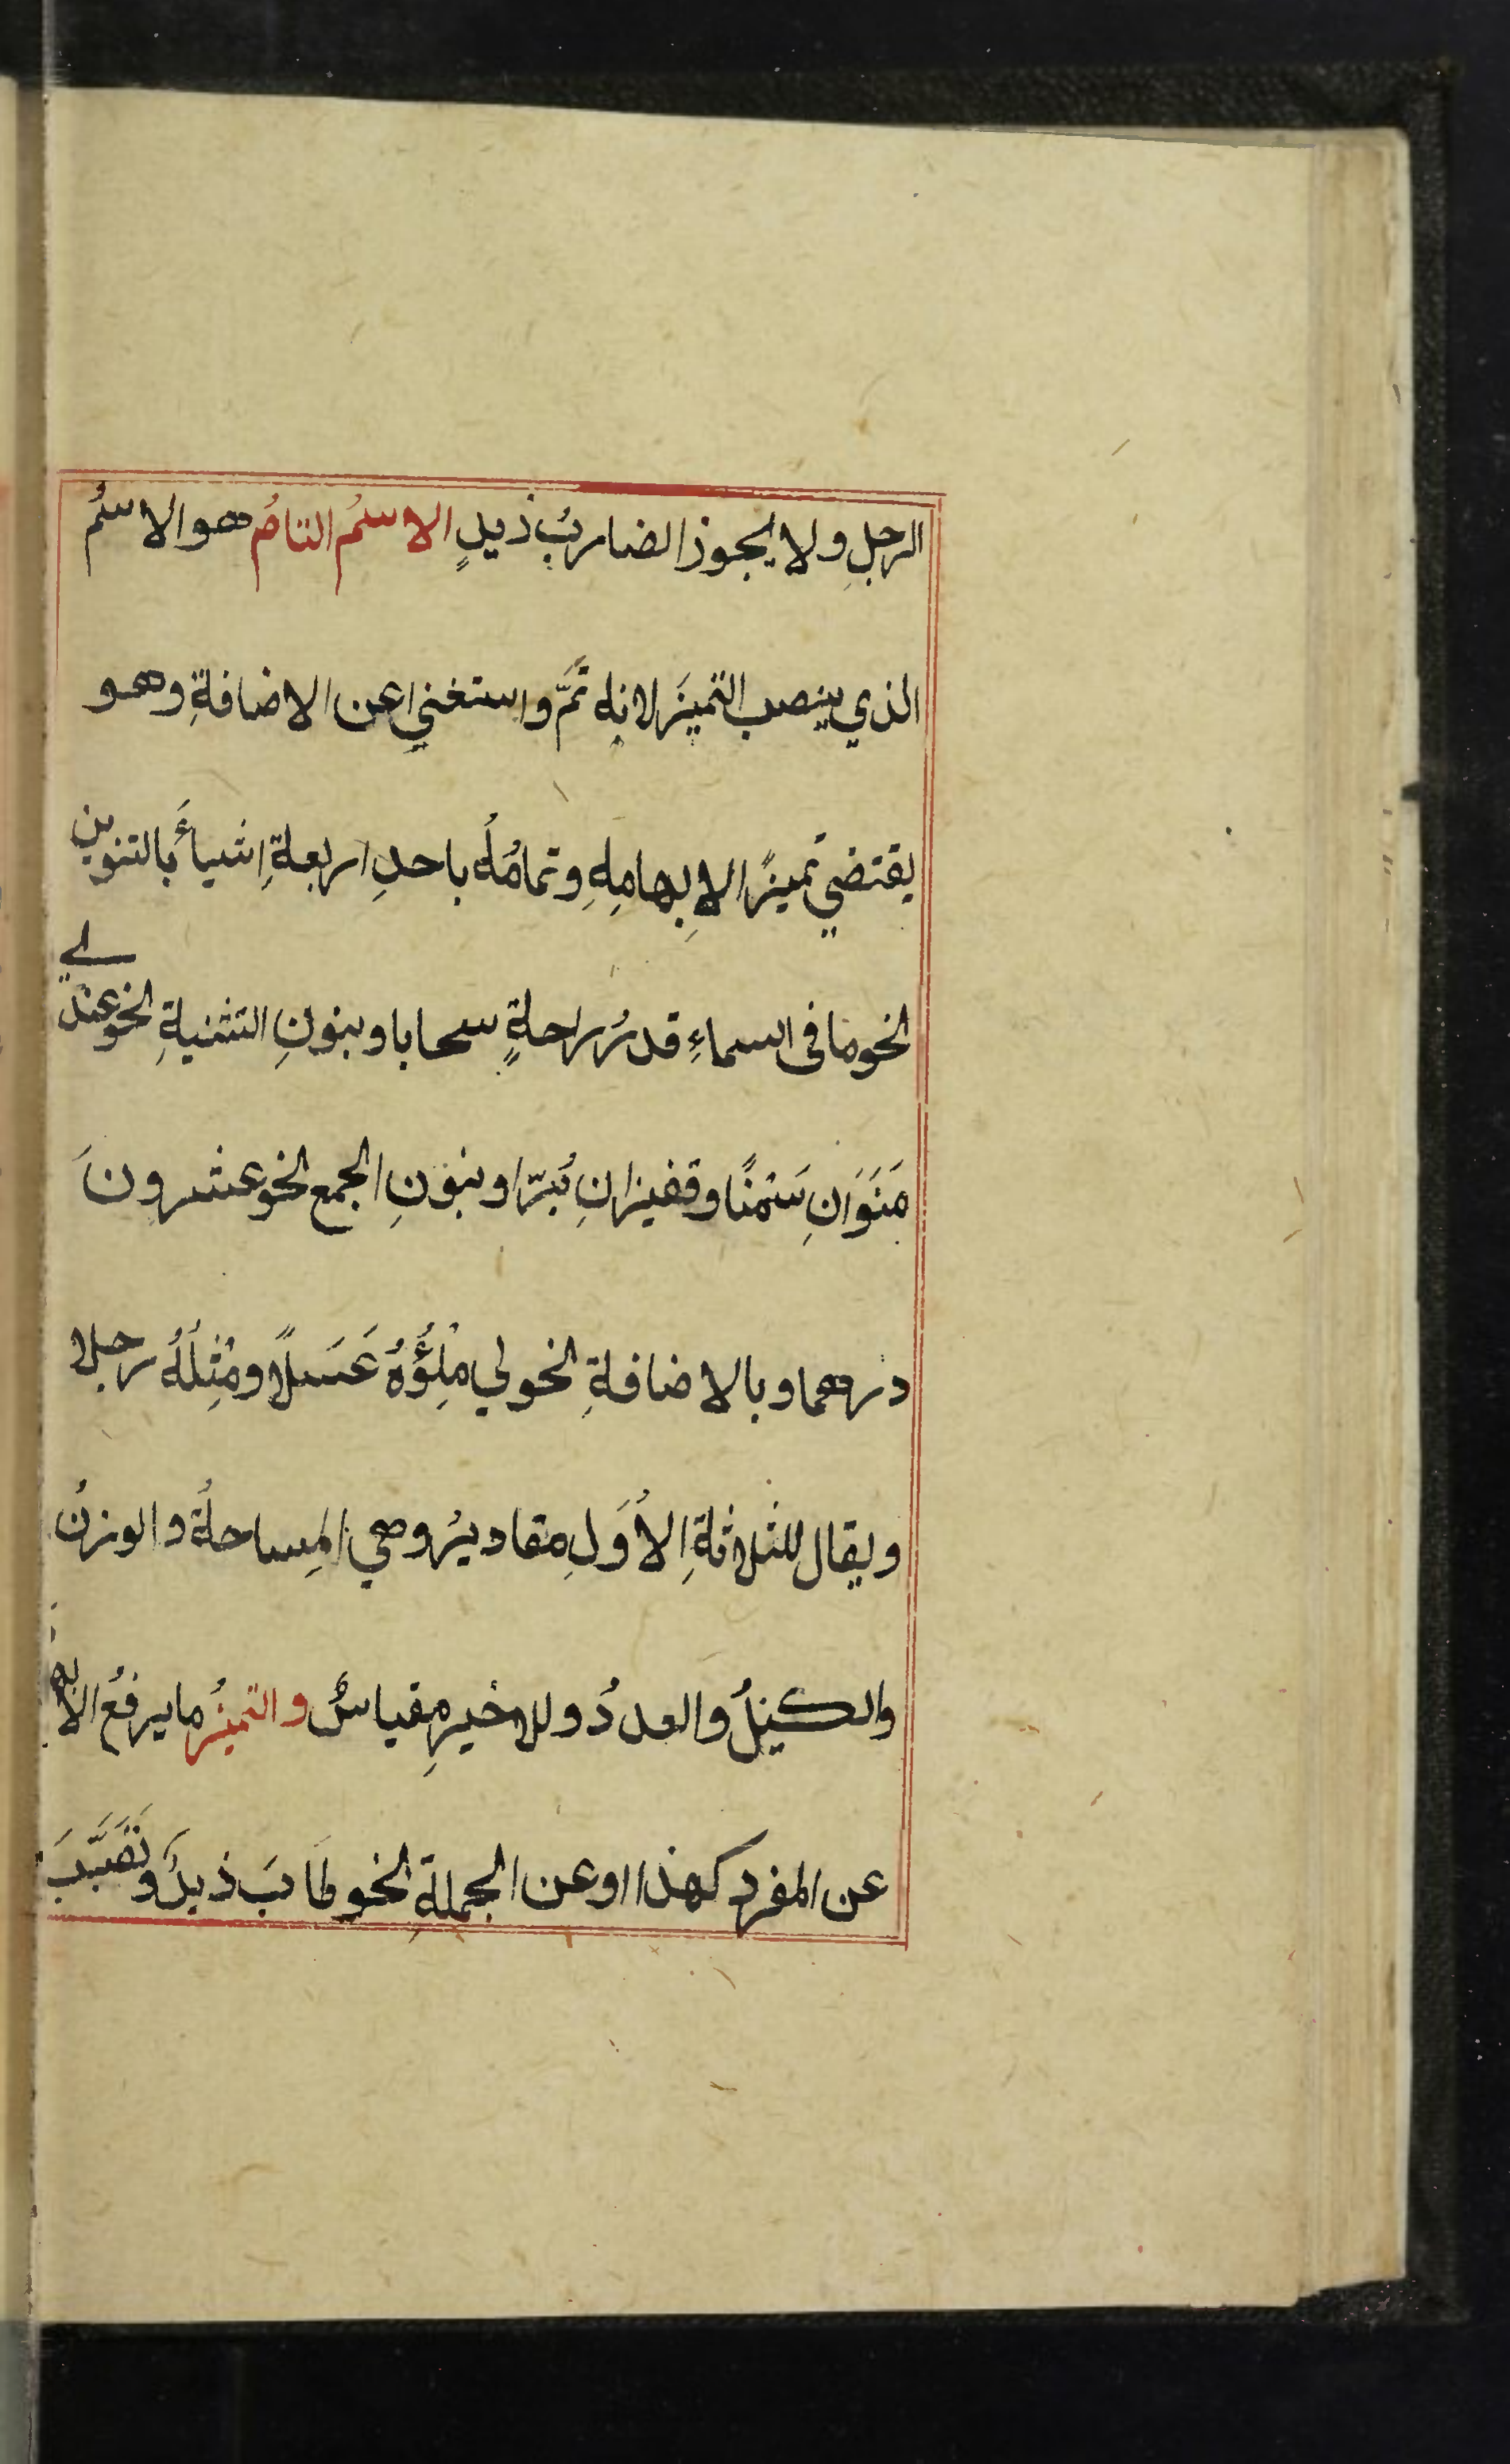 الرجلِ ولا يجوز الضاربُ زيدٍ الاسمُ التامُ هو الاسمُ
الذي ينصب التميزَ لانه تَمَّ واستغني عن الاضافةِ وهو
يقتضي تميزًا لابهامِهِ وتمامُهُ باحدِ اربعةِ اشيأَ بالتنوين
نحو ما فى السماءِ قدرُ راحةٍ سحابا وبنونِ التثنيةِ نحو عندي
مَنَوَانِ سَمْنًا وقفيزانِ بُرّا وبنونِ الجمع نحو عشرونَ
درهما وبالاضافةِ نحو لي مِلْؤُهُ عَسَلًا ومِثْلُهُ رجلا
ويقال للثلاثةِ الأُوَلِ مقاديرُ وهي المِساحةُ والوزنُ
والكيلُ والعددُ وللاخيرِ مقياسٌ والتميزُ ما يرفعُ
عن المفردِ كهذا او عن الجملةِ نحو طَابَ زيدٌ وتَصَبَّبَ